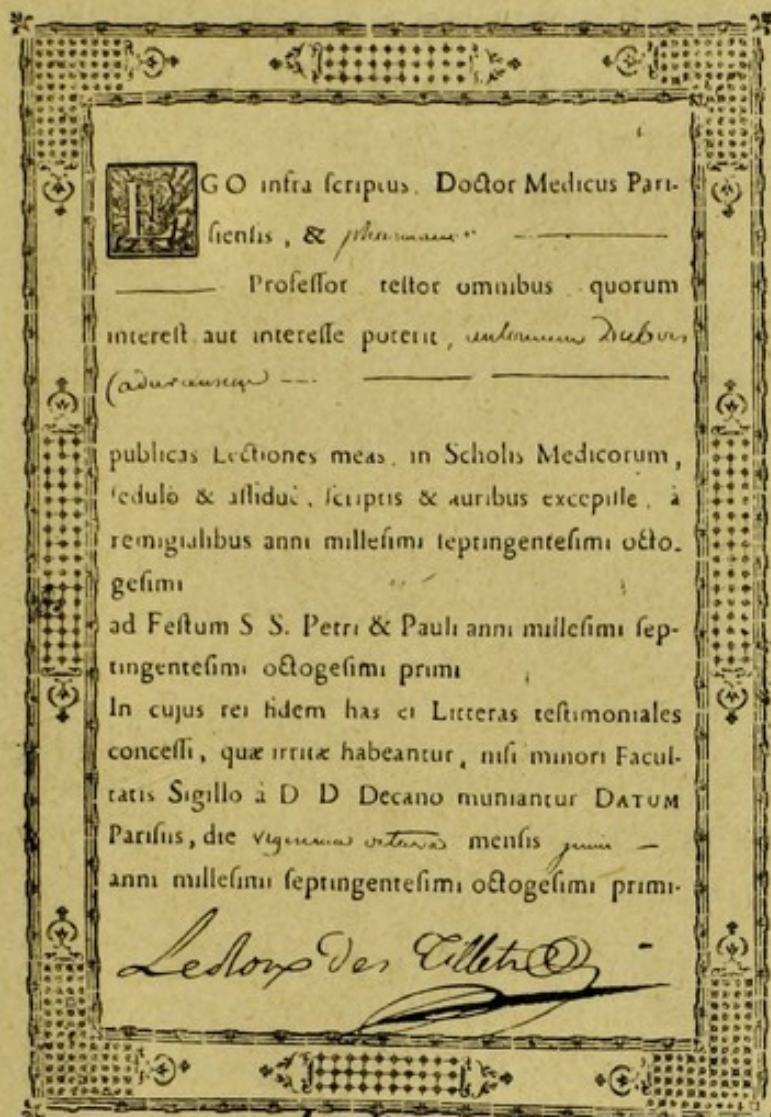 EGO infra scriptus, Doctor Medicus Pari-
siensis, &
Professor testor omnibus quorum
interest aut interesse poterit, Dubois
(
publicas Lectiones meas, in Scholis Medicorum,
sedulò & assiduè, scriptis & auribus excepisse, à
remigialibus anni millesimi septingentesimi octo-
gesimi
ad Festum S S. Petri & Pauli anni millesimi sep-
tingentesimi octogesimi primi
In cujus rei fidem has ei Litteras testimoniales
concessi, quæ irritæ habeantur, nisi minori Facul-
tatis Sigillo à D D Decano muniantur DATUM
Parisiis, die vigesima octava mensis junii —
anni millesimi septingentesimi octogesimi primi.
Des Tillets